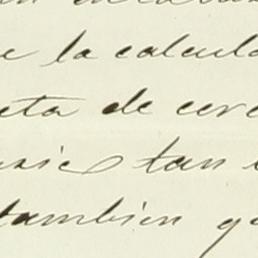 e la calcul
eta de cer
tan
tambien q